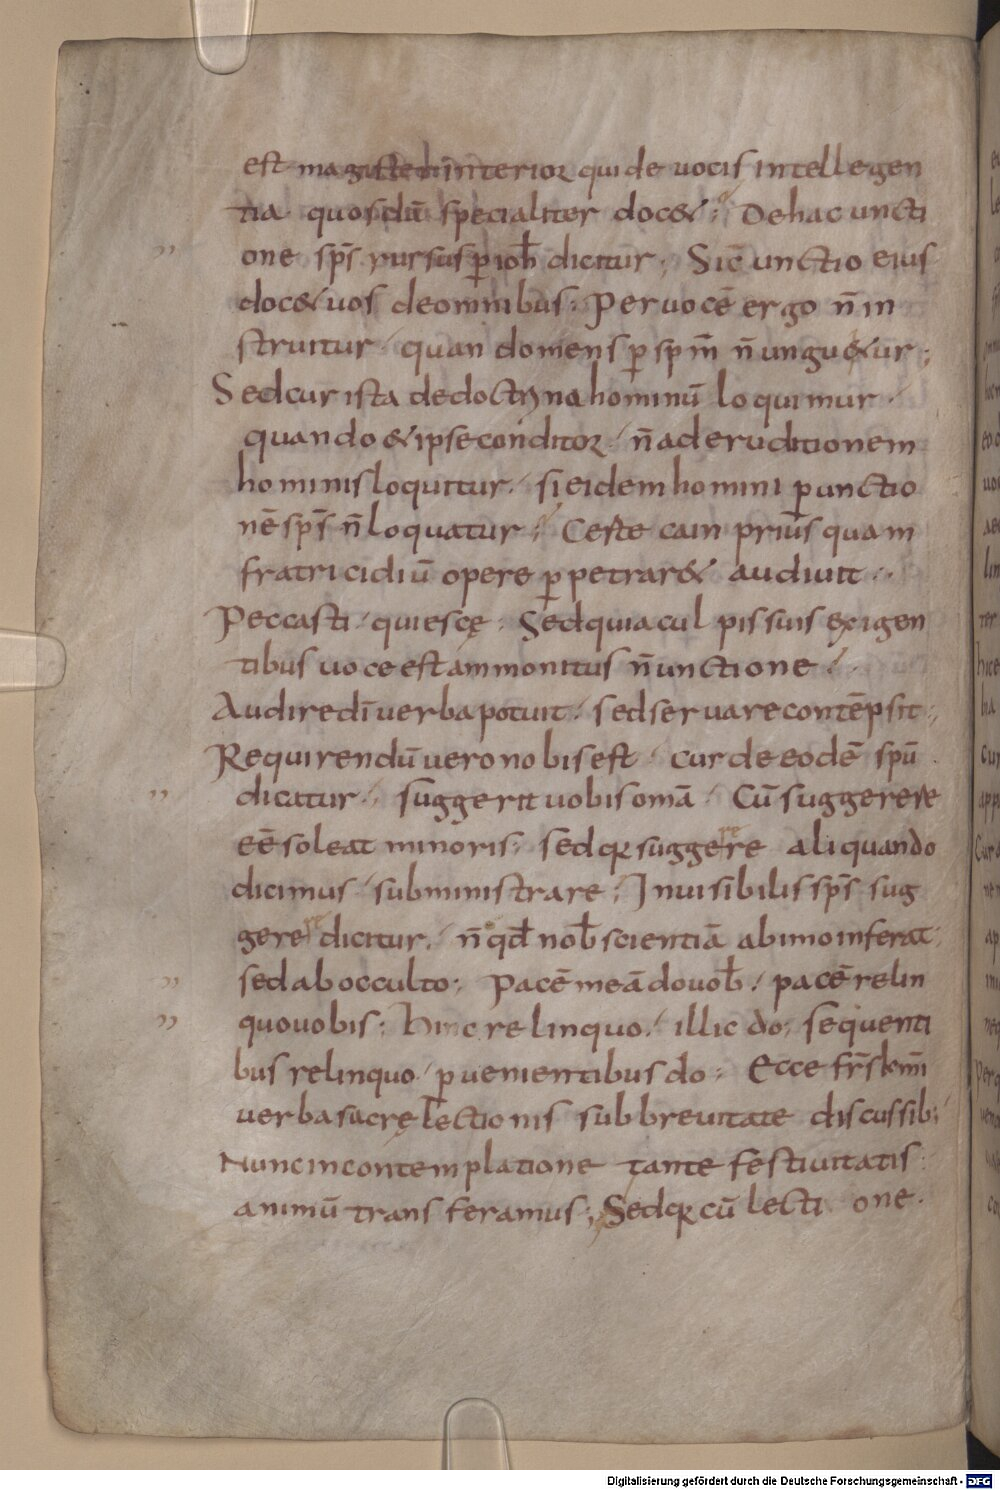 est magister interior qui de uocis intellegen
tia quosdā specialiter doc&; De hac uncti
one sp̄s rursus ꝑ ioh̄ dicitur; Sic̄ unctio eius
doc& uos de omnibus; Per uocē ergo n̄ in
struitur quando mens ꝑ sp̄m n̄ ungu&ur;
Sed cur ista de doctrina hominū loquimur.
quando & ipse conditor n̄ ad eruditionem
hominis loquitur, si eidem homini ꝑ unctio
nē sp̄s n̄ loquatur; Certe cain prius quam
fratricidiū opere ꝑpetrar& audiuit.
Peccasti quiescę. Sed quia culpis suis exigen
tibus uoce est ammonitus n̄ unctione;
Audire dī uerba potuit, sed seruare contēpsit;
Requirendū uero nobis est cur de eodē spū.
dicatur, suggerit uobis omā. Cū suggerere
eē soleat minoris; sed qr suggerere aliquando
dicimus subministrare; Inuisibilis sp̄s sug
gerere dicitur, n̄ qd̄ nob̄ scientiā ab imo inferat;
sed ab occulto; Pacē meā do uob̄, pacē relin
quo uobis; Hinc relinquo, illic do; sequenti
bus relinquo ꝑuenientibus do; Ecce fr̄s km̄i
uerba sacrę lectionis sub breuitate discussib;
Nunc in contemplatione tante festiuitatis
animū transferamus; Sed qr cū lectione.
Digitalisierung gefördert durch die Deutsche Forschungsgemeinschaft - DFG